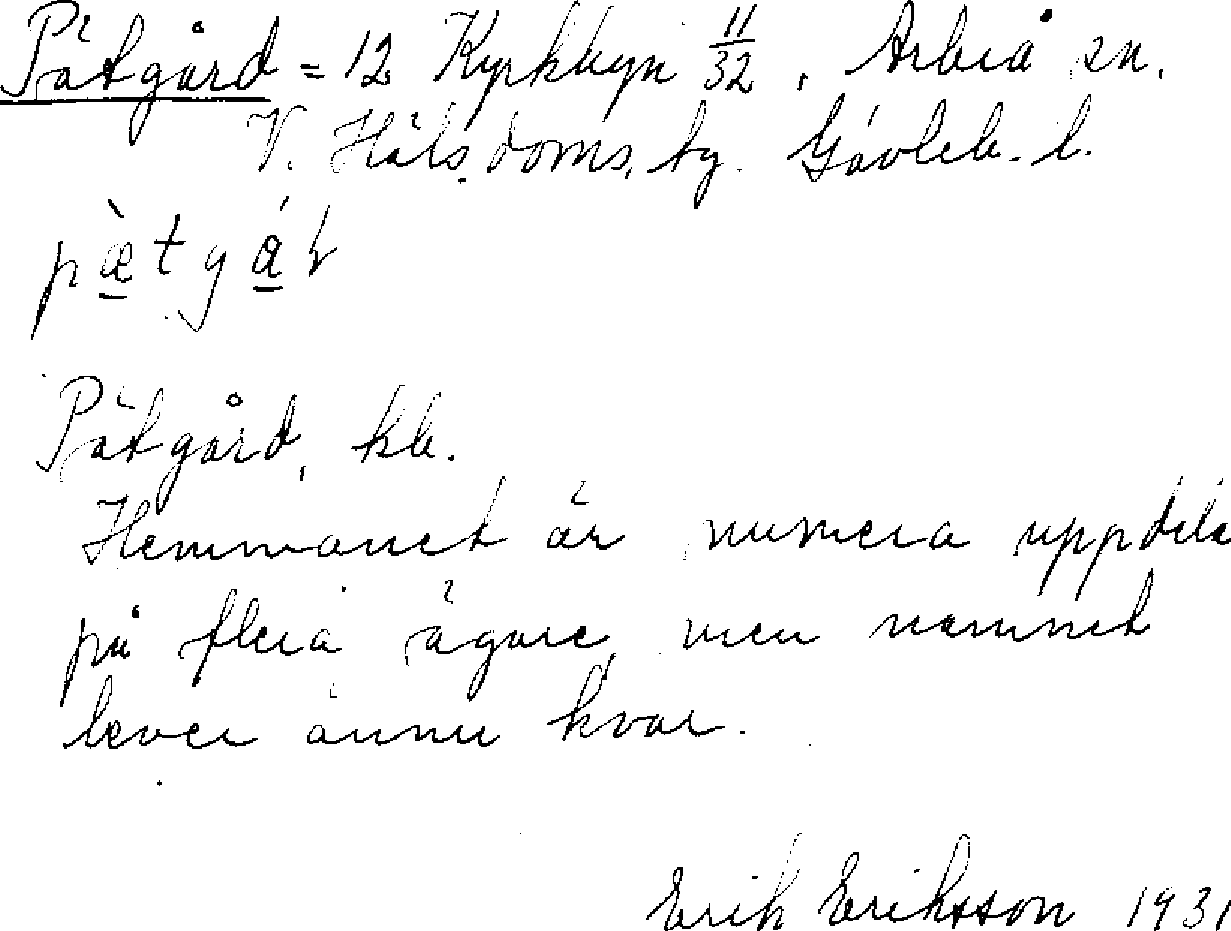 Pätgård = 12 Kyrkbyn 11/32, Arbrå sn.
V. Häls. doms. bg. Gävleb. l.
pæ̀tgá̱ɽ
Pätgård, kb.
Hemmanet är numera uppdela
på flera ägare, men namnet
lever ännu kvar.
Erik Eriksson 1931